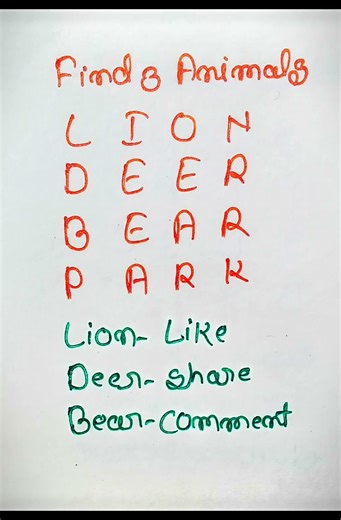 Find 3 Animals
L I O N
D E E R
B E A R
P A R K
Lion- Like
Deer- Share
Bear-Comment